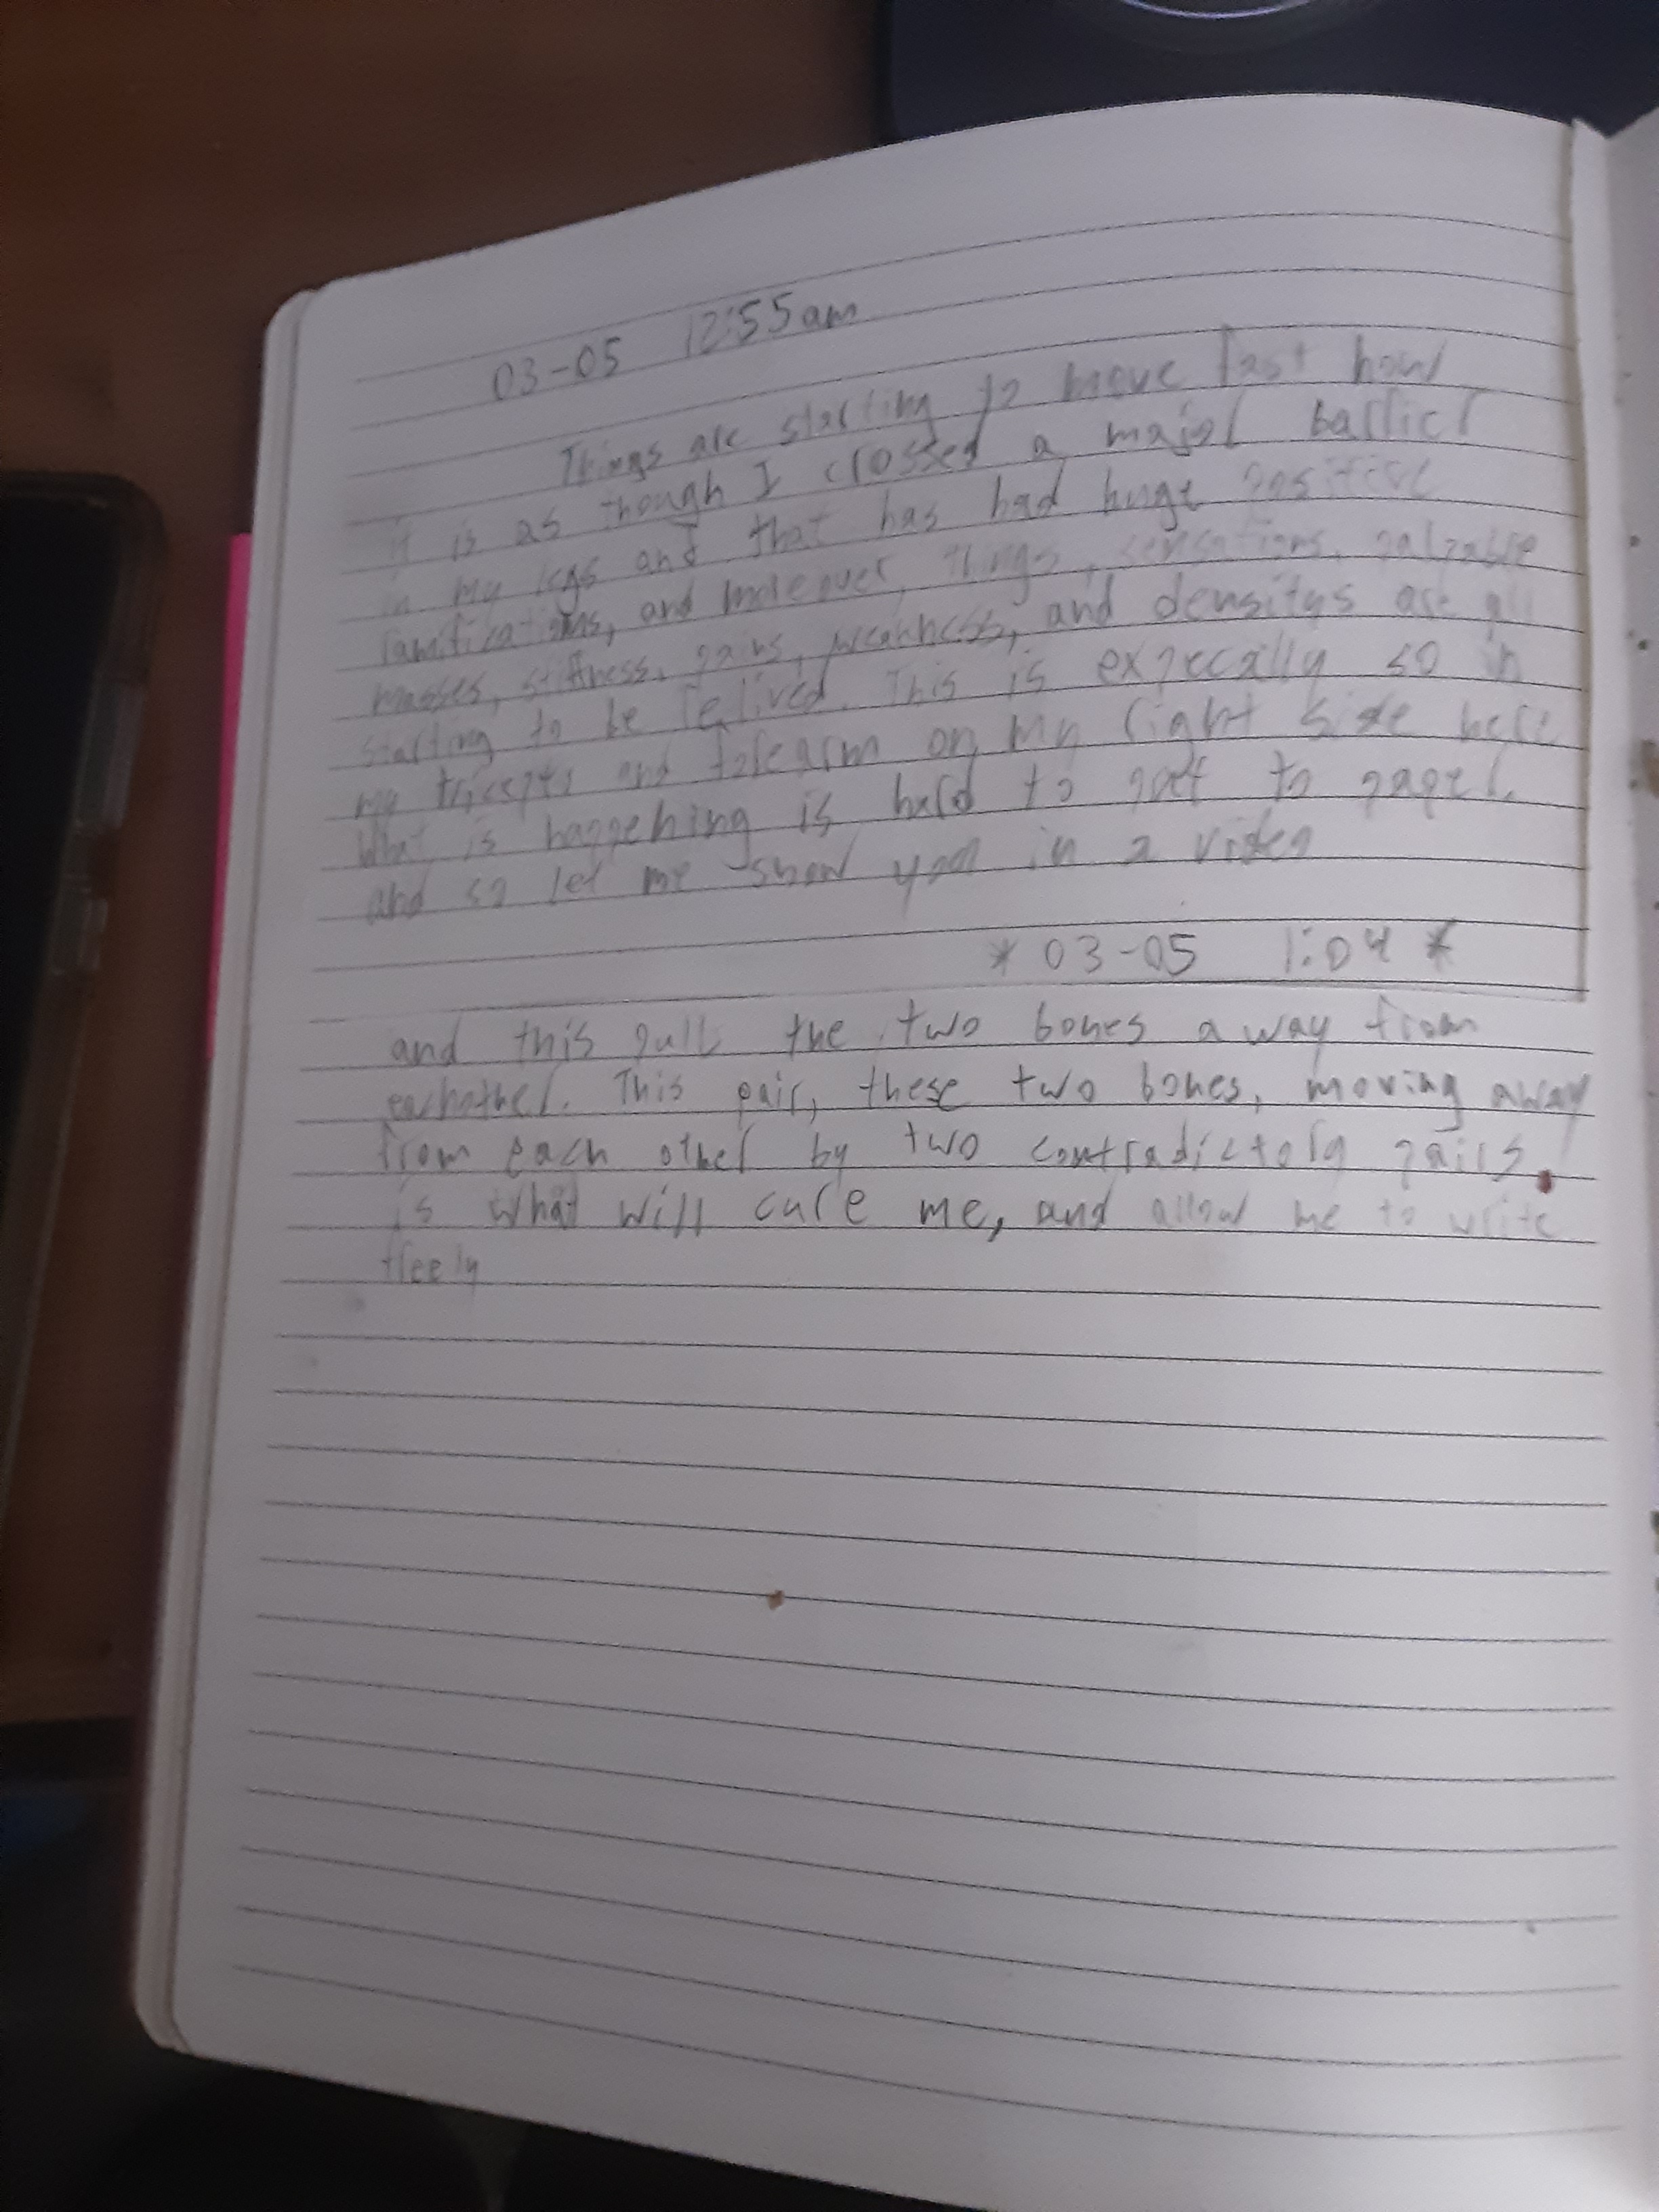 03-05 12:55am
Things are starting to move fast how
it is as though I crossed a major barrier
in my legs and that has had huge positive
ramifications, and moreover, things, sensations, palpable
masses, stiffness, pains, weakness, and densitys are all
starting to be relived. This is expecally so in
my tricepts and forearm on my right side here
What is happening is hard to put to paper.
and so let me show you in a video
* 03-05 1:04 *
and this pull the two bones away from
eachother. This pair, these two bones, moving away
from each other by two contradictory pairs.
is what will cure me, and allow me to write
freely